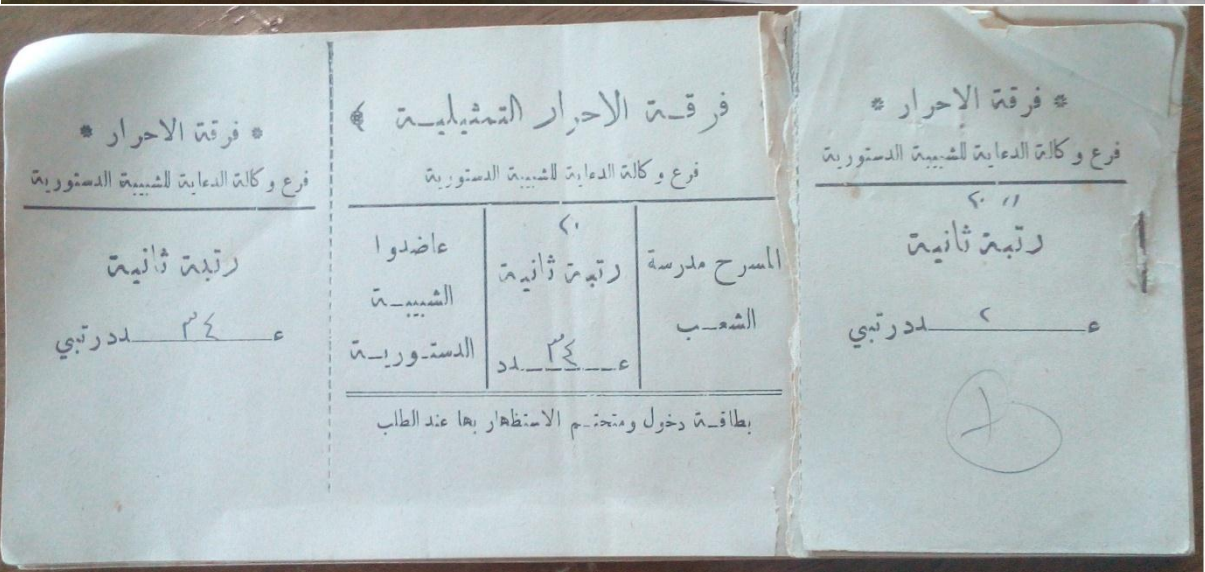 * فرقة الاحرار *
فرع وكالة الدعاية للشبيبة الدستورية
رتبة ثانية
عـ٢ـدد رتبي
فرقة الاحرار التمثيلية
فرع وكالة الدعاية للشبيبة الدستورية
المسرح مدرسة
الشعب
٢٠
رتبة ثانية
عـ٣٤ـدد
عاضدوا
الشبيبة
الدستورية
بطاقة دخول ومتحتم الاستظهار بها عند الطلب
* فرقة الاحرار *
فرع وكالة الدعاية للشبيبة الدستورية
رتبة ثانية
عـ٣٤ـدد رتبي